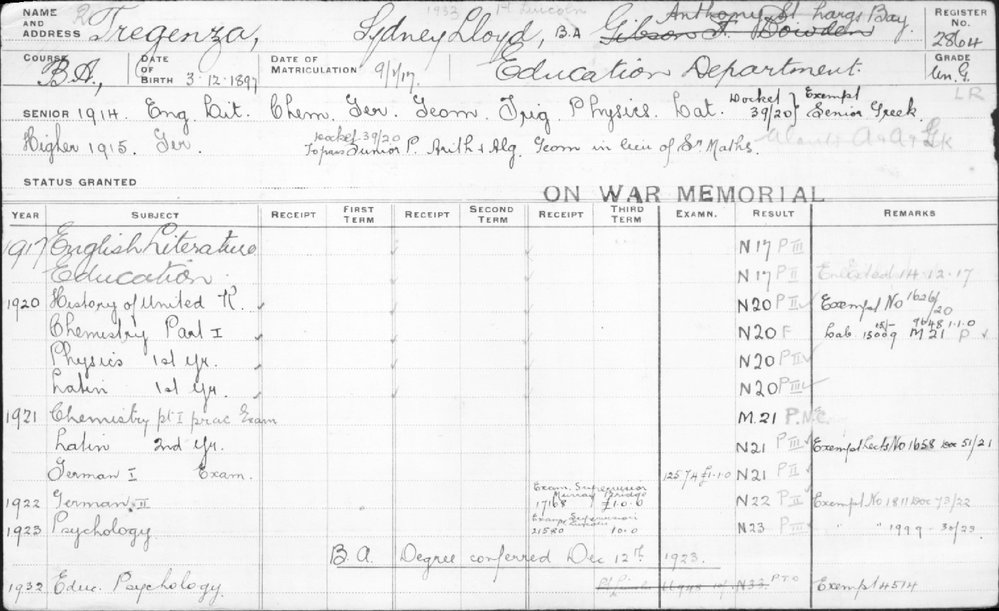 1933 Pt Lincoln
NAME AND ADDRESS Tregenza, Sydney Lloyd, B.A. Gibson St Bowden Anthony St Largs Bay. REGISTER No. 2864
COURSE B.A. DATE OF BIRTH 3.12.1897 DATE OF MATRICULATION 9/1/17. Education Department. GRADE Un. G.
LR
SENIOR 1914. Eng. Lit. Chem. Ger. Geom. Trig. Physics. Lat. Docket 39/20 } Exempt Senior Greek.
Higher 1915. Ger. Docket 39/20 To pass Junior P. Arith & Alg. Geom in lieu of Sr Maths.
STATUS GRANTED
ON WAR MEMORIAL
YEAR SUBJECT RECEIPT FIRST TERM RECEIPT SECOND TERM RECEIPT THIRD TERM EXAMN. RESULT REMARKS
1917 English Literature N17 P III
Education N17 P II Enlisted 14.12.17
1920 History of United K. N20 P II Exempt No 1626/20
Chemistry Part I N20 F Lab. 15/- 15009 9648 1.1.0 M21 P
Physics 1st Yr. N20 P II
Latin 1st Yr. N20 P III
1921 Chemistry pt I prac Exam M.21 P.N.C.
Latin 2nd Yr. N21 P III Exempt Lects No 1658 Doc 51/21
German I Exam. 12574 £1.1.0 N21 P II
1922 German II Exam. Supervisor Murray Bridge 17168 £1.0.0 N22 P II Exempt No 1811 Doc 73/22
1923 Psychology Exam Supervisor 21580 10.0 N23 P III " " 1999 - 30/23
B.A. Degree conferred Dec 12th 1923.
1932 Educ. Psychology N33 P.T.O Exempt 4514